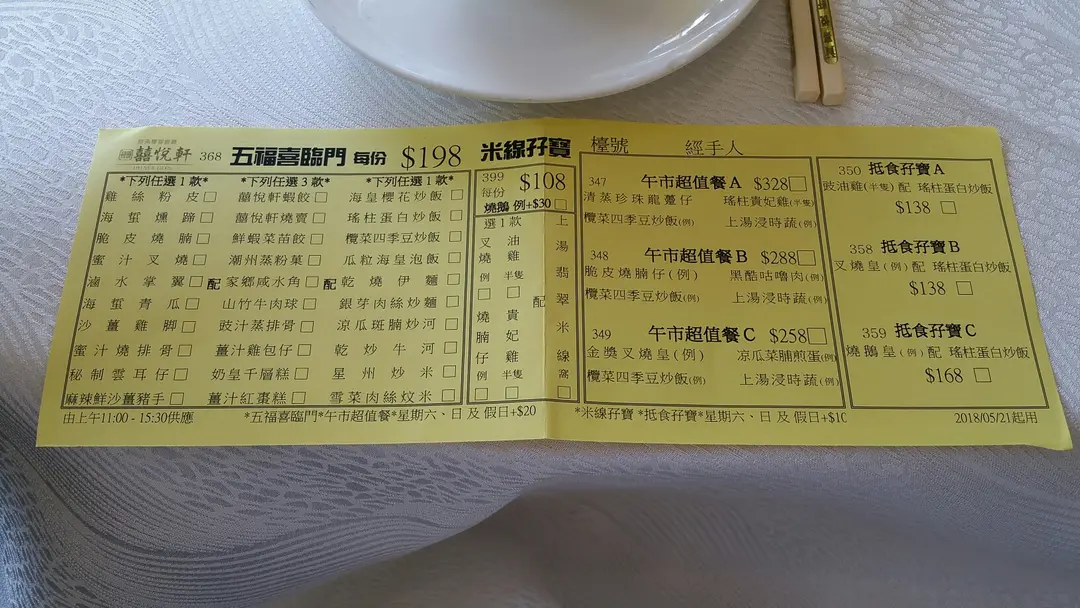 囍悅軒 368 五福喜臨門 每份 $198
*下列任選1款* *下列任選3款* *下列任選1款*
雞絲粉皮□ 蘭悅軒蝦餃□ 海皇櫻花炒飯□
海蜇燻蹄□ 蘭悅軒燒賣□ 瑤柱蛋白炒飯□
脆皮燒腩□ 鮮蝦菜苗餃□ 欖菜四季豆炒飯□
蜜汁叉燒□ 潮州蒸粉菓□ 瓜粒海皇泡飯□
滷水掌翼□ 配 家鄉咸水角□ 配 乾燒伊麵□
海蜇青瓜□ 山竹牛肉球□ 銀芽肉絲炒麵□
沙薑雞脚□ 豉汁蒸排骨□ 涼瓜斑腩炒河□
蜜汁燒排骨□ 薑汁雞包仔□ 乾炒牛河□
秘制雲耳仔□ 奶皇千層糕□ 星州炒米□
麻辣鮮沙薑豬手□ 薑汁紅棗糕□ 雪菜肉絲炆米□
由上午11:00 - 15:30供應 *五福喜臨門*午市超值餐*星期六、日及假日+$20
米線孖寶
399
每份 $108
燒鵝 例+$30□
選1款
叉燒 例 □
油雞 半隻 □
燒腩仔 例 □
貴妃雞 半隻 □
配
上湯翡翠米線窩 □
檯號 經手人
347 午市超值餐A $328□
清蒸珍珠龍躉仔 瑤柱貴妃雞(半隻)
欖菜四季豆炒飯(例) 上湯浸時蔬(例)
348 午市超值餐B $288□
脆皮燒腩仔(例) 黑酷咕嚕肉(例)
欖菜四季豆炒飯(例) 上湯浸時蔬(例)
349 午市超值餐C $258□
金獎叉燒皇(例) 凉瓜菜脯煎蛋(例)
欖菜四季豆炒飯(例) 上湯浸時蔬(例)
350 抵食孖寶A
豉油雞(半隻)配 瑤柱蛋白炒飯
$138 □
358 抵食孖寶B
叉燒皇(例)配 瑤柱蛋白炒飯
$138 □
359 抵食孖寶C
燒鵝皇(例)配 瑤柱蛋白炒飯
$168 □
*米線孖寶 *抵食孖寶*星期六、日及假日+$10
2018/05/21起用